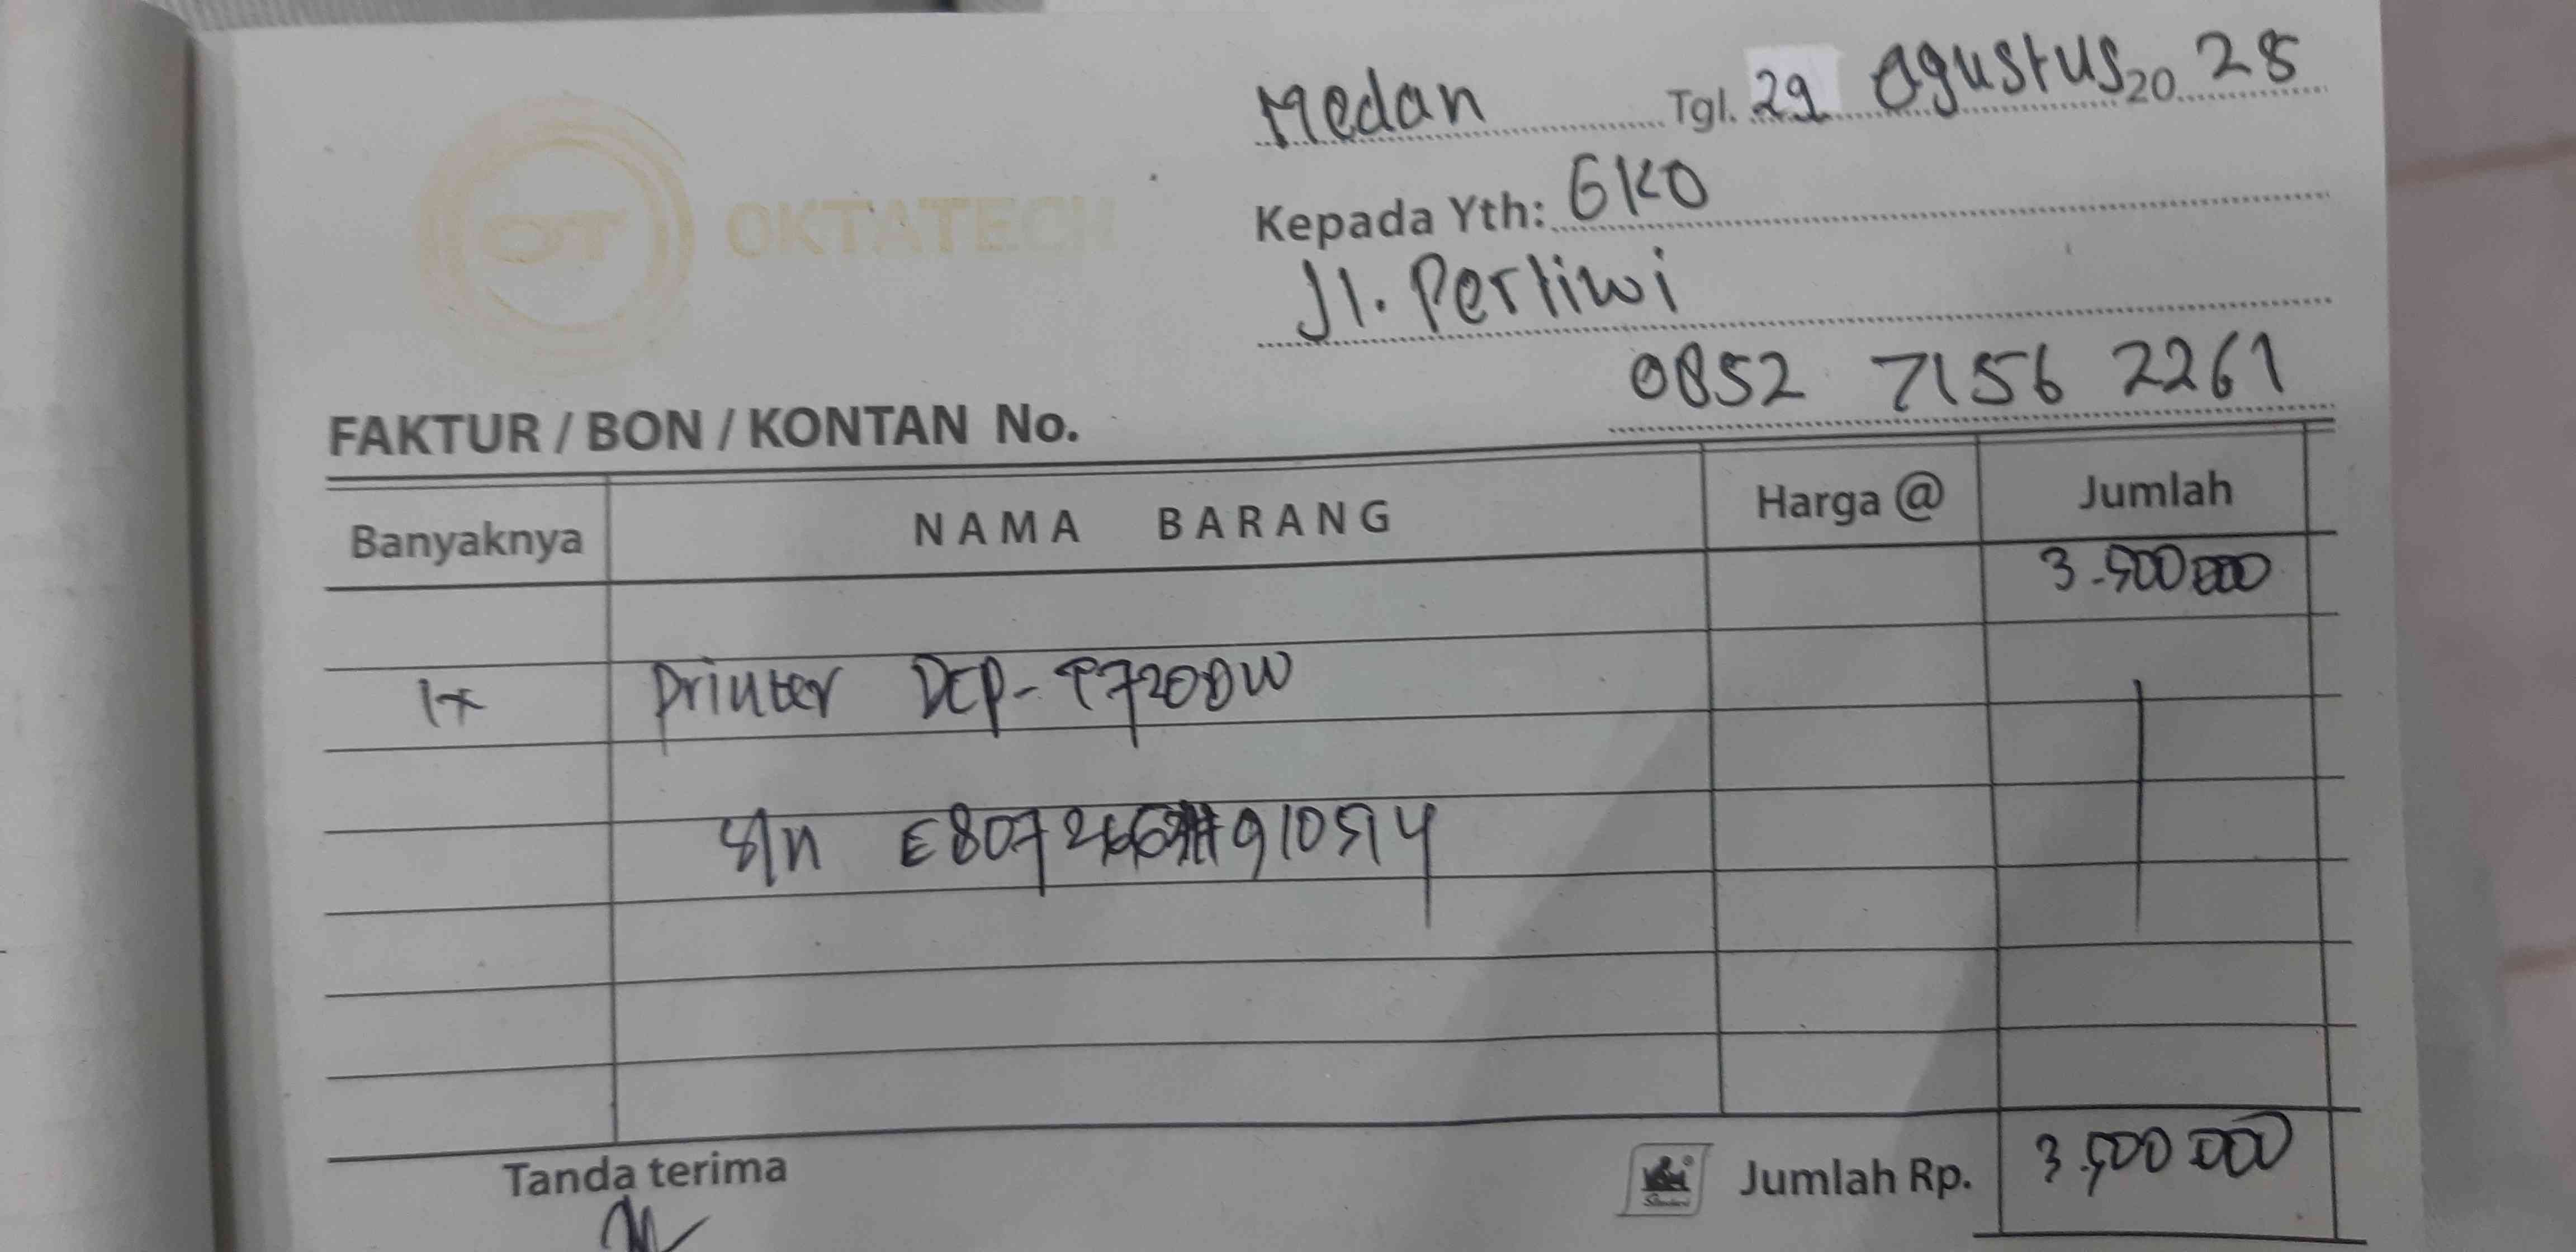 Medan Tgl. 29 Agustus 20 25
OT OKTATECH
Kepada Yth: EKO
Jl. Pertiwi
0852 7156 2261
FAKTUR / BON / KONTAN No.
Banyaknya NAMA BARANG Harga @ Jumlah
3.500 000
1x Printer DCP-T720DW
S/n
Tanda terima Jumlah Rp. 3.500 000